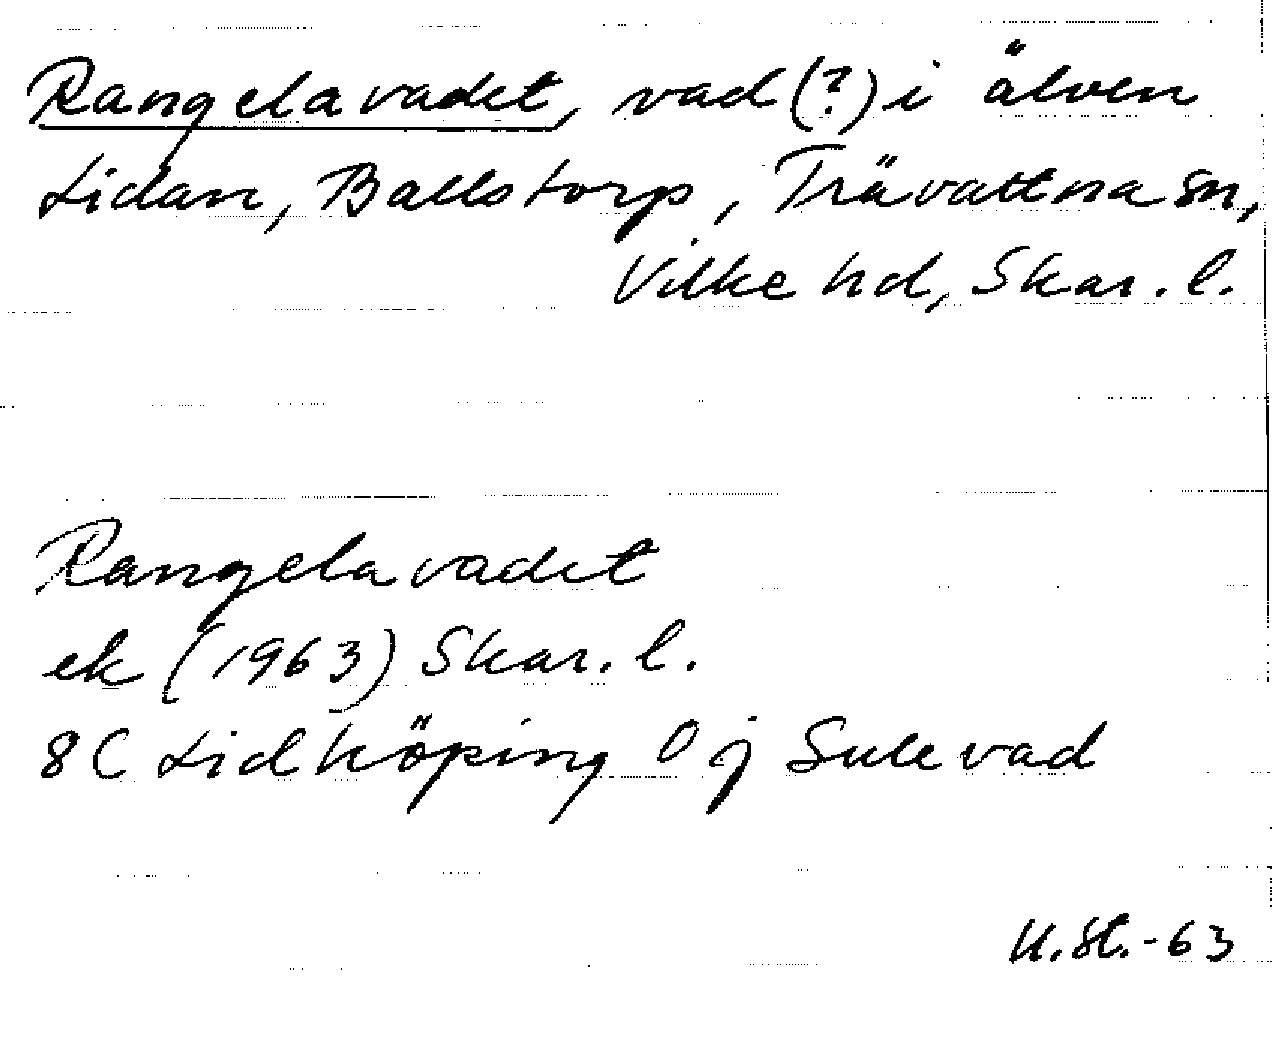 Rangelavadet, vad(?) i älven
Lidan, Ballstorp, Trävattna sn,
Vilke hd, Skar. l.
Rangelavadet
ek (1963) Skar. l.
8C Lidköping 0 j Sulevad
U. St. -63